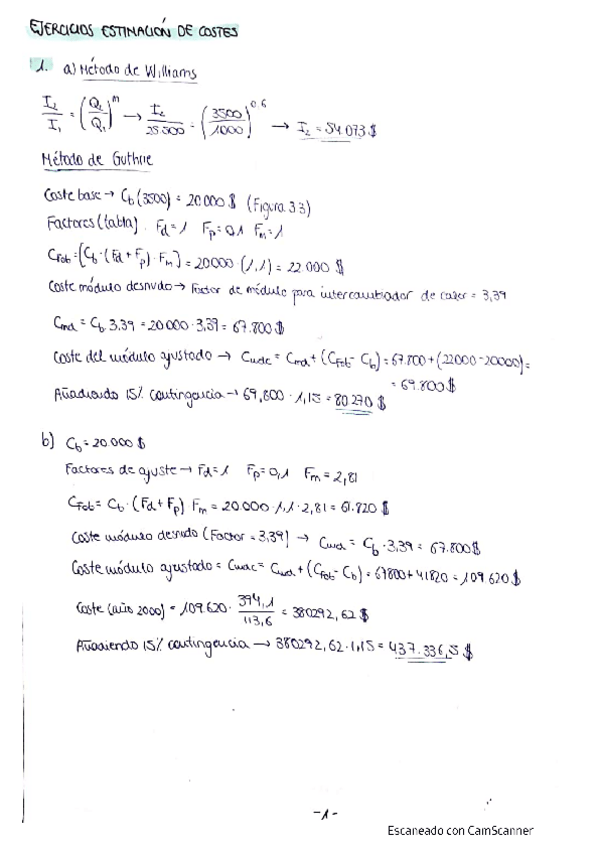 EJERCICIOS ESTIMACIÓN DE COSTES
1. a) Método de Williams
I₂/I₁ = (Q₂/Q₁)^m → I₂/25 500 = (3500/1000)^0.6 → I₂ = 54.073 $
Método de Guthrie
Coste base → Cb (3500) = 20 000 $ (Figura 3.3)
Factores (tabla). Fd = 1 Fp = 0,1 Fm = 1
CFob = [Cb · (Fd + Fp) · Fm] = 20000 (1,1) = 22.000 $
Coste módulo desnudo → Factor de módulo para intercambiador de calor = 3,39
Cmd = Cb 3.39 = 20 000 · 3,39 = 67.800 $
Coste del módulo ajustado → Cmdc = Cmd + (CFob - Cb) = 67.800 + (22000 - 20000) =
= 69.800 $
Añadiendo 15% contingencia → 69,800 · 1,15 = 80 270 $
b) Cb = 20.000 $
Factores de ajuste → Fd = 1 Fp = 0,1 Fm = 2,81
CFob = Cb · (Fd + Fp) Fm = 20.000 · 1,1 · 2,81 = 61.820 $
Coste módulo desnudo (Factor = 3,39) → Cmd = Cb · 3.39 = 67.800 $
Coste módulo ajustado = Cmdc = Cmd + (CFob - Cb) = 67800 + 41820 = 109 620 $
Coste (año 2000) = 109.620 · 394,1/113,6 = 380292,62 $
Añadiendo 15% contingencia → 380292,62 · 1,15 = 437.336,5 $
-1-
Escaneado con CamScanner